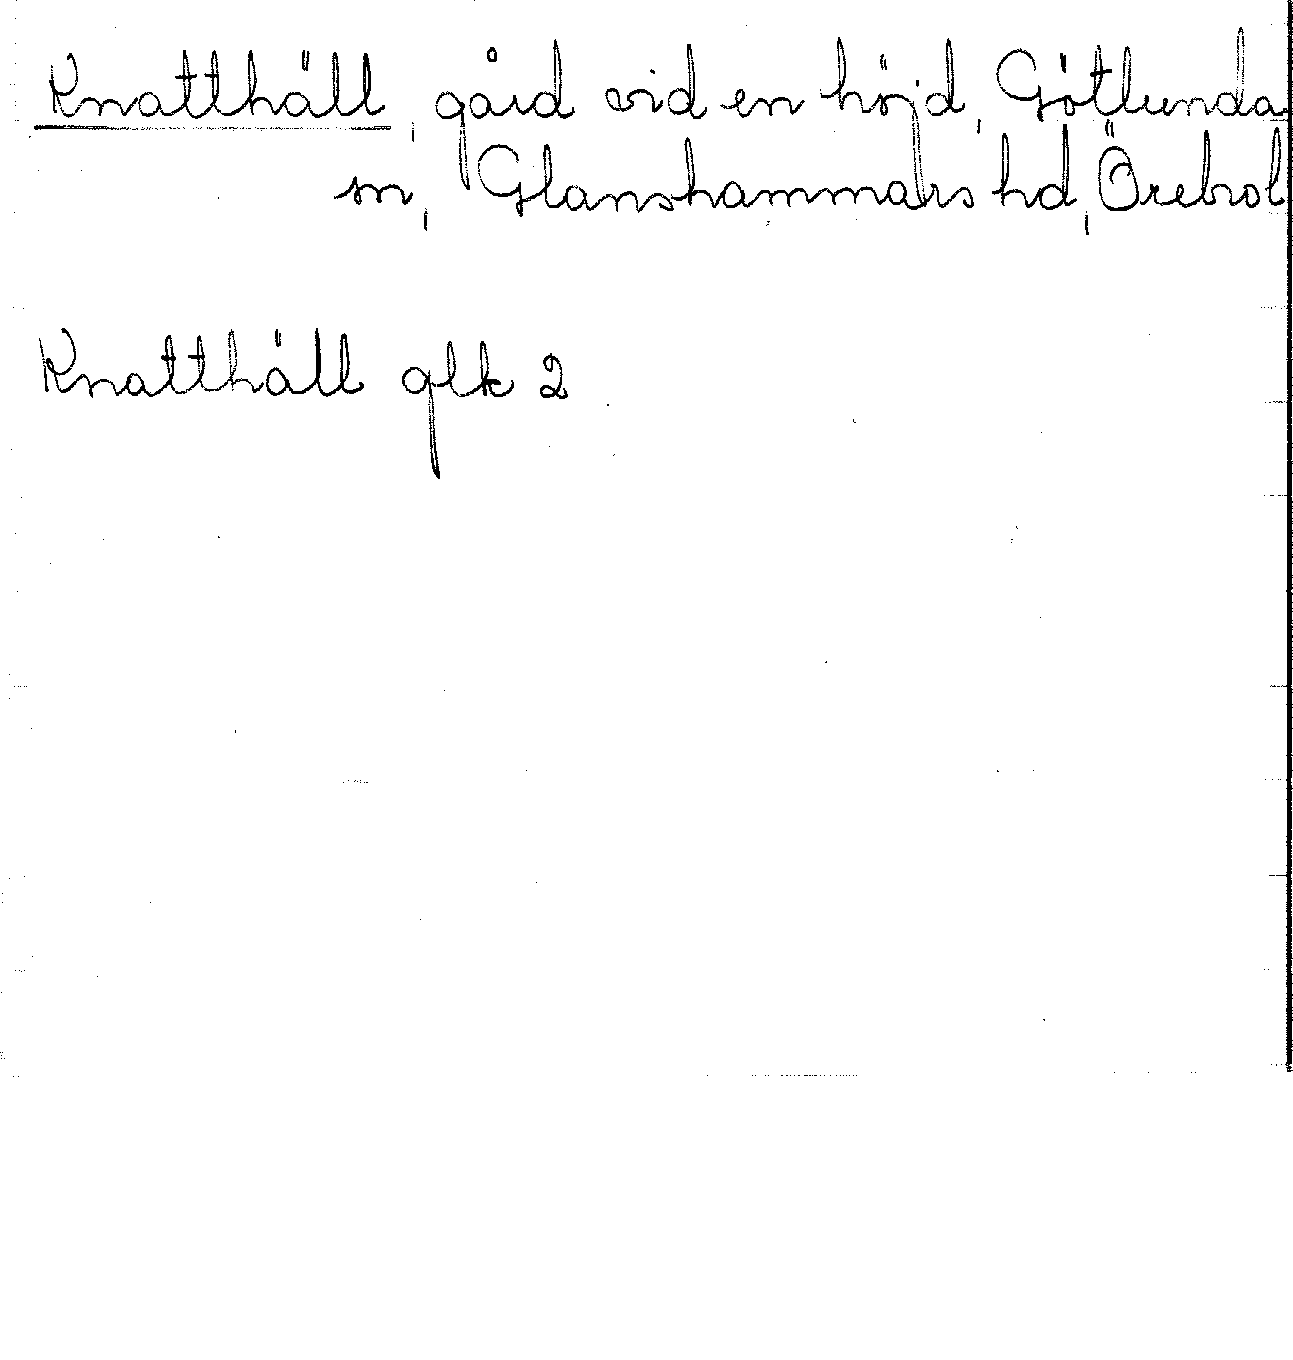 Knatthäll, gård vid en höjd, Götlunda
sn, Glanshammars hd, Örebrol
Knatthäll glk 2